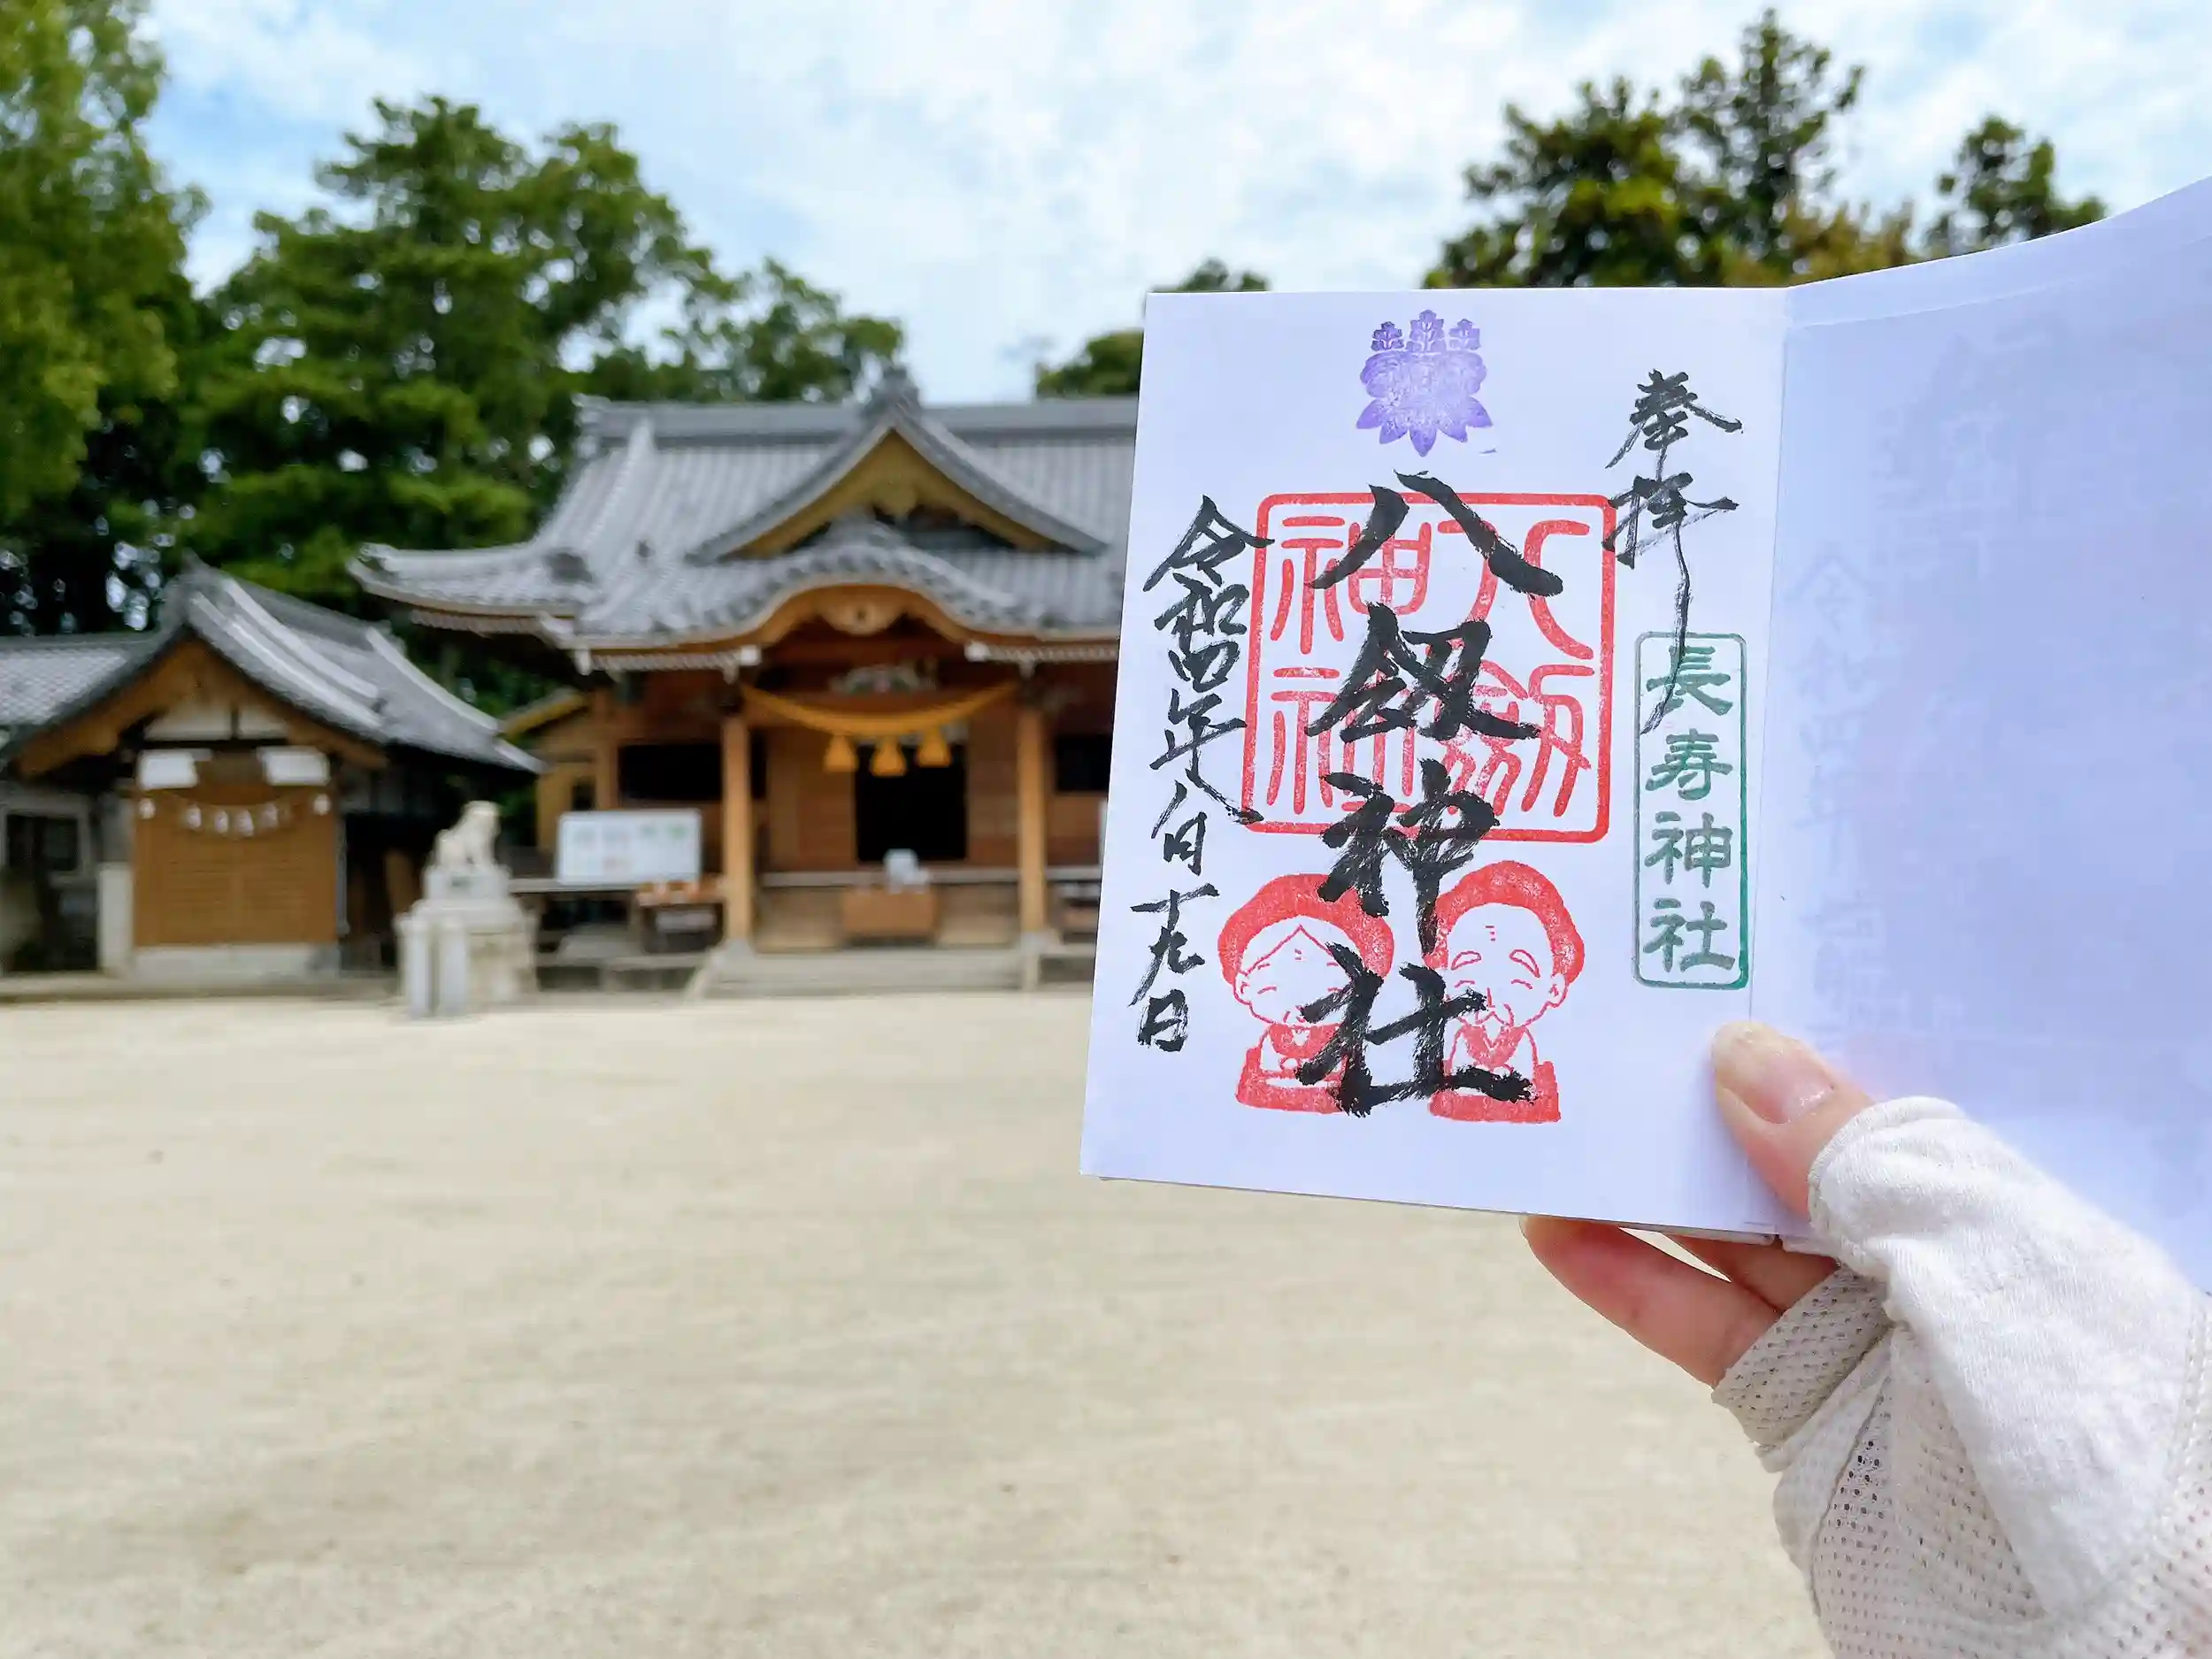 奉拝
長寿神社
八剱神社
八剱
神社
令和四年八月十九日